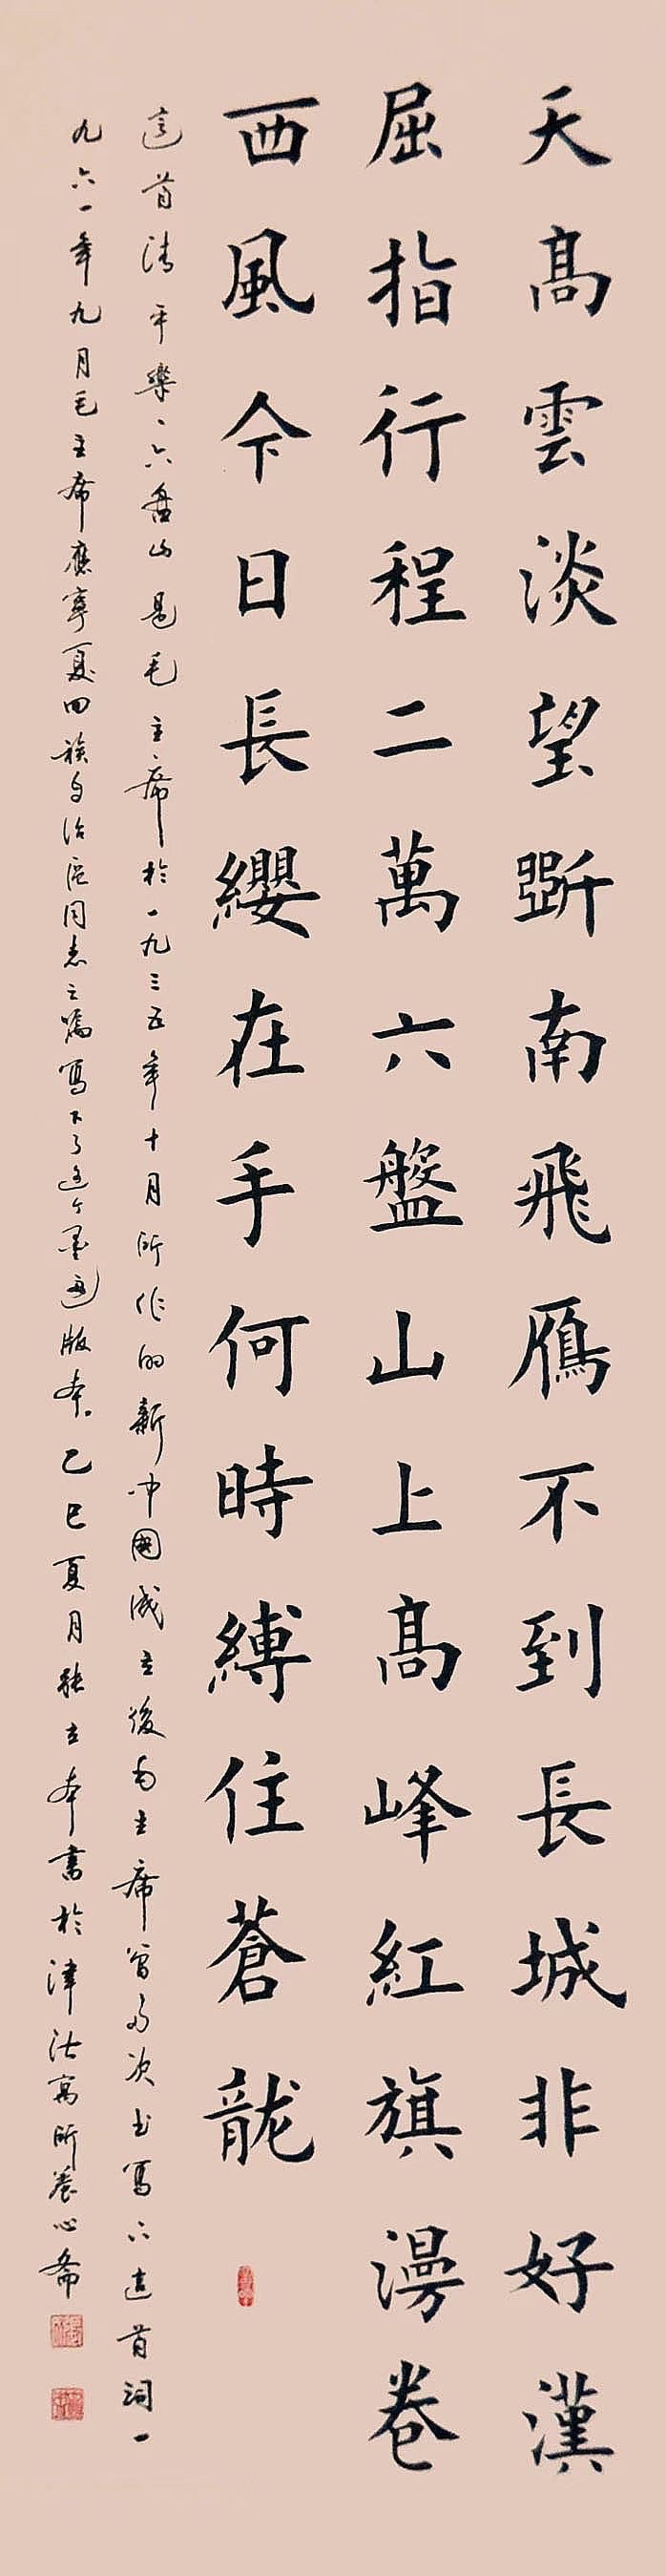 天高雲淡望斷南飛雁不到長城非好漢
屈指行程二萬六盤山上高峰紅旗漫卷
西風今日長纓在手何時縛住蒼龍
這首清平樂、六盤山是毛主席於一九三五年十月所作的新中國成立後毛主席曾多次书寫下這首詞一
九六一年九月毛主席應寧夏回族自治區同志之囑寫下了這个墨迹版本。乙巳夏月張立本書於津沽寓所養心齋